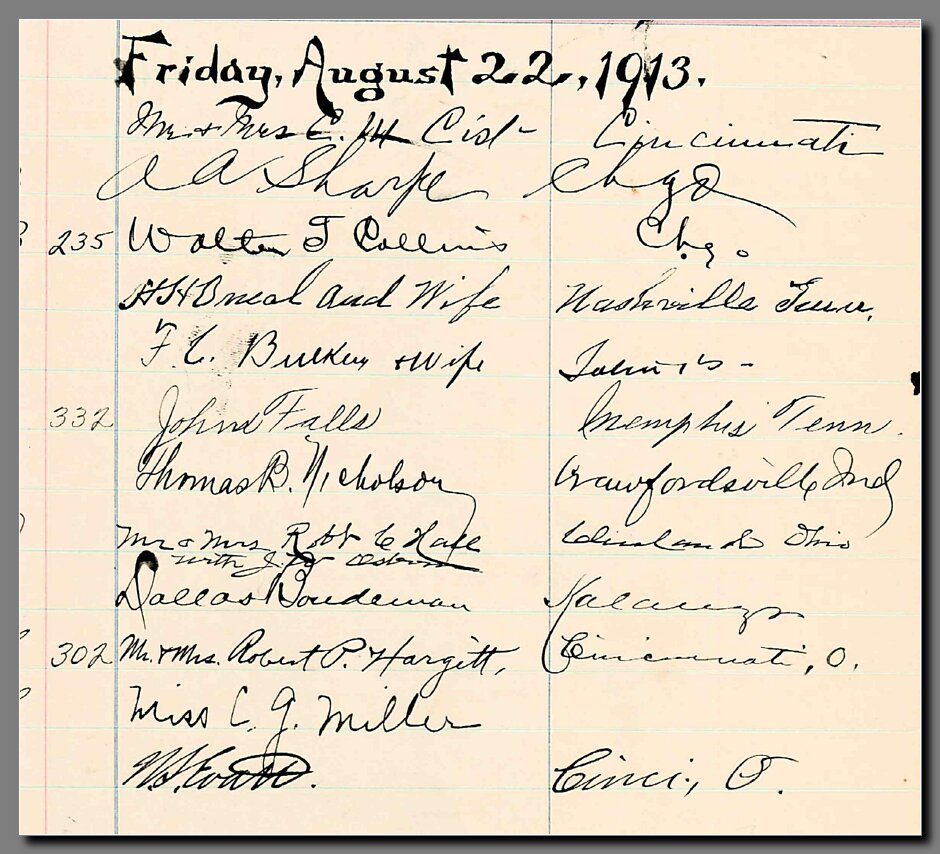 Friday, August 22, 1913.
Mr. & Mrs C. Cist Cincinnati
A A Sharpe Chgo
235 Walter J Collins Chg.
and Wife Nashville Tenn,
F. C. & Wife
332 John Falls Memphis Tenn.
Thomas B. Nicholson Crawfordsville Ind
Mr & Mrs Robt C Hall Cleveland Ohio
with J.
Dallas Boudeman Kalamazoo
302 Mr. & Mrs. Robert P. Hargitt, Cincinnati, O.
Miss C. G. Miller
Cinci, O.